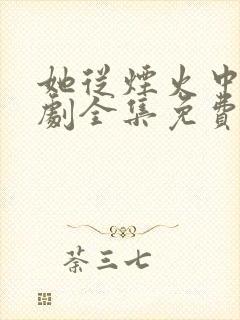 她从煙火中
劇全集免費
荼三七